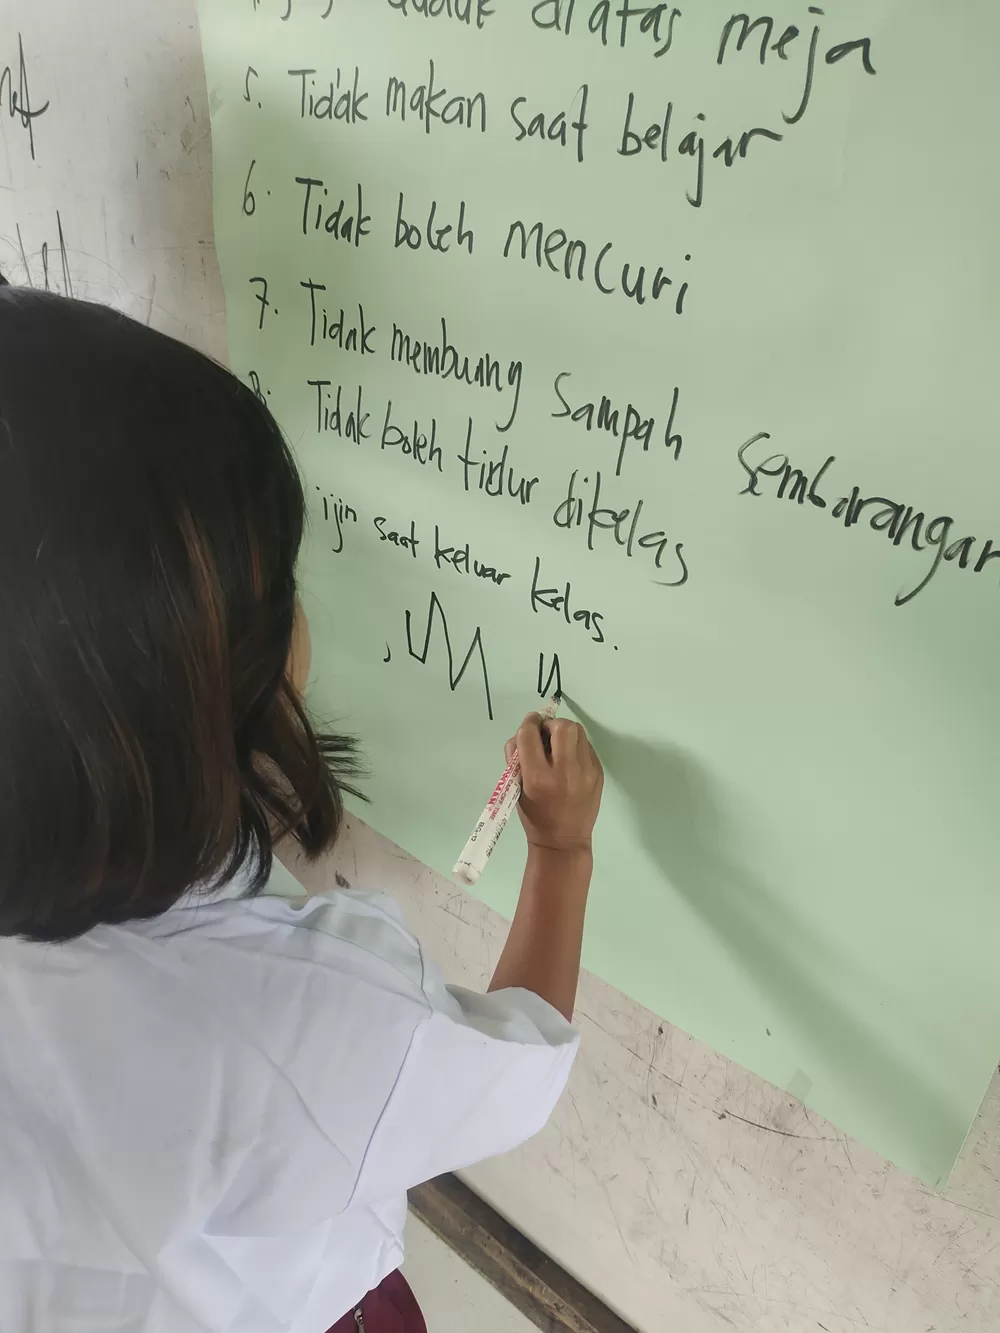 duduk diatas meja
5. Tidak makan saat belajar
6. Tidak boleh mencuri
7. Tidak membuang sampah sembarangan
8. Tidak boleh tidur dikelas
ijin saat keluar kelas.
BG-12